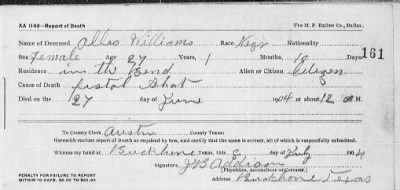 XA 1148—Report of Death The M. P. Exline Co., Dallas.
Name of Deceased Alles Williams Race Negr Nationality
161
Sex Female Age 27 Years, 1 Months, 10 Days
Residence in the Bend Alien or Citizen Citizen
Cause of Death pistol Shot
Died on the 27 day of June 1904 at 12 M.
To County Clerk Austin County Texas:
I herewith enclose report of Death as required by law, and certify that the same is correct, all of which is respectfully submitted.
Witness my hand at Buckhorn Texas, this day of July 1904
Signature, J B Addison
(Physician, Accoucheur or Coroner.)
PENALTY FOR FAILURE TO REPORT
WITHIN 10 DAYS, $5.00 TO $50.00
Address Buckhorn Texas